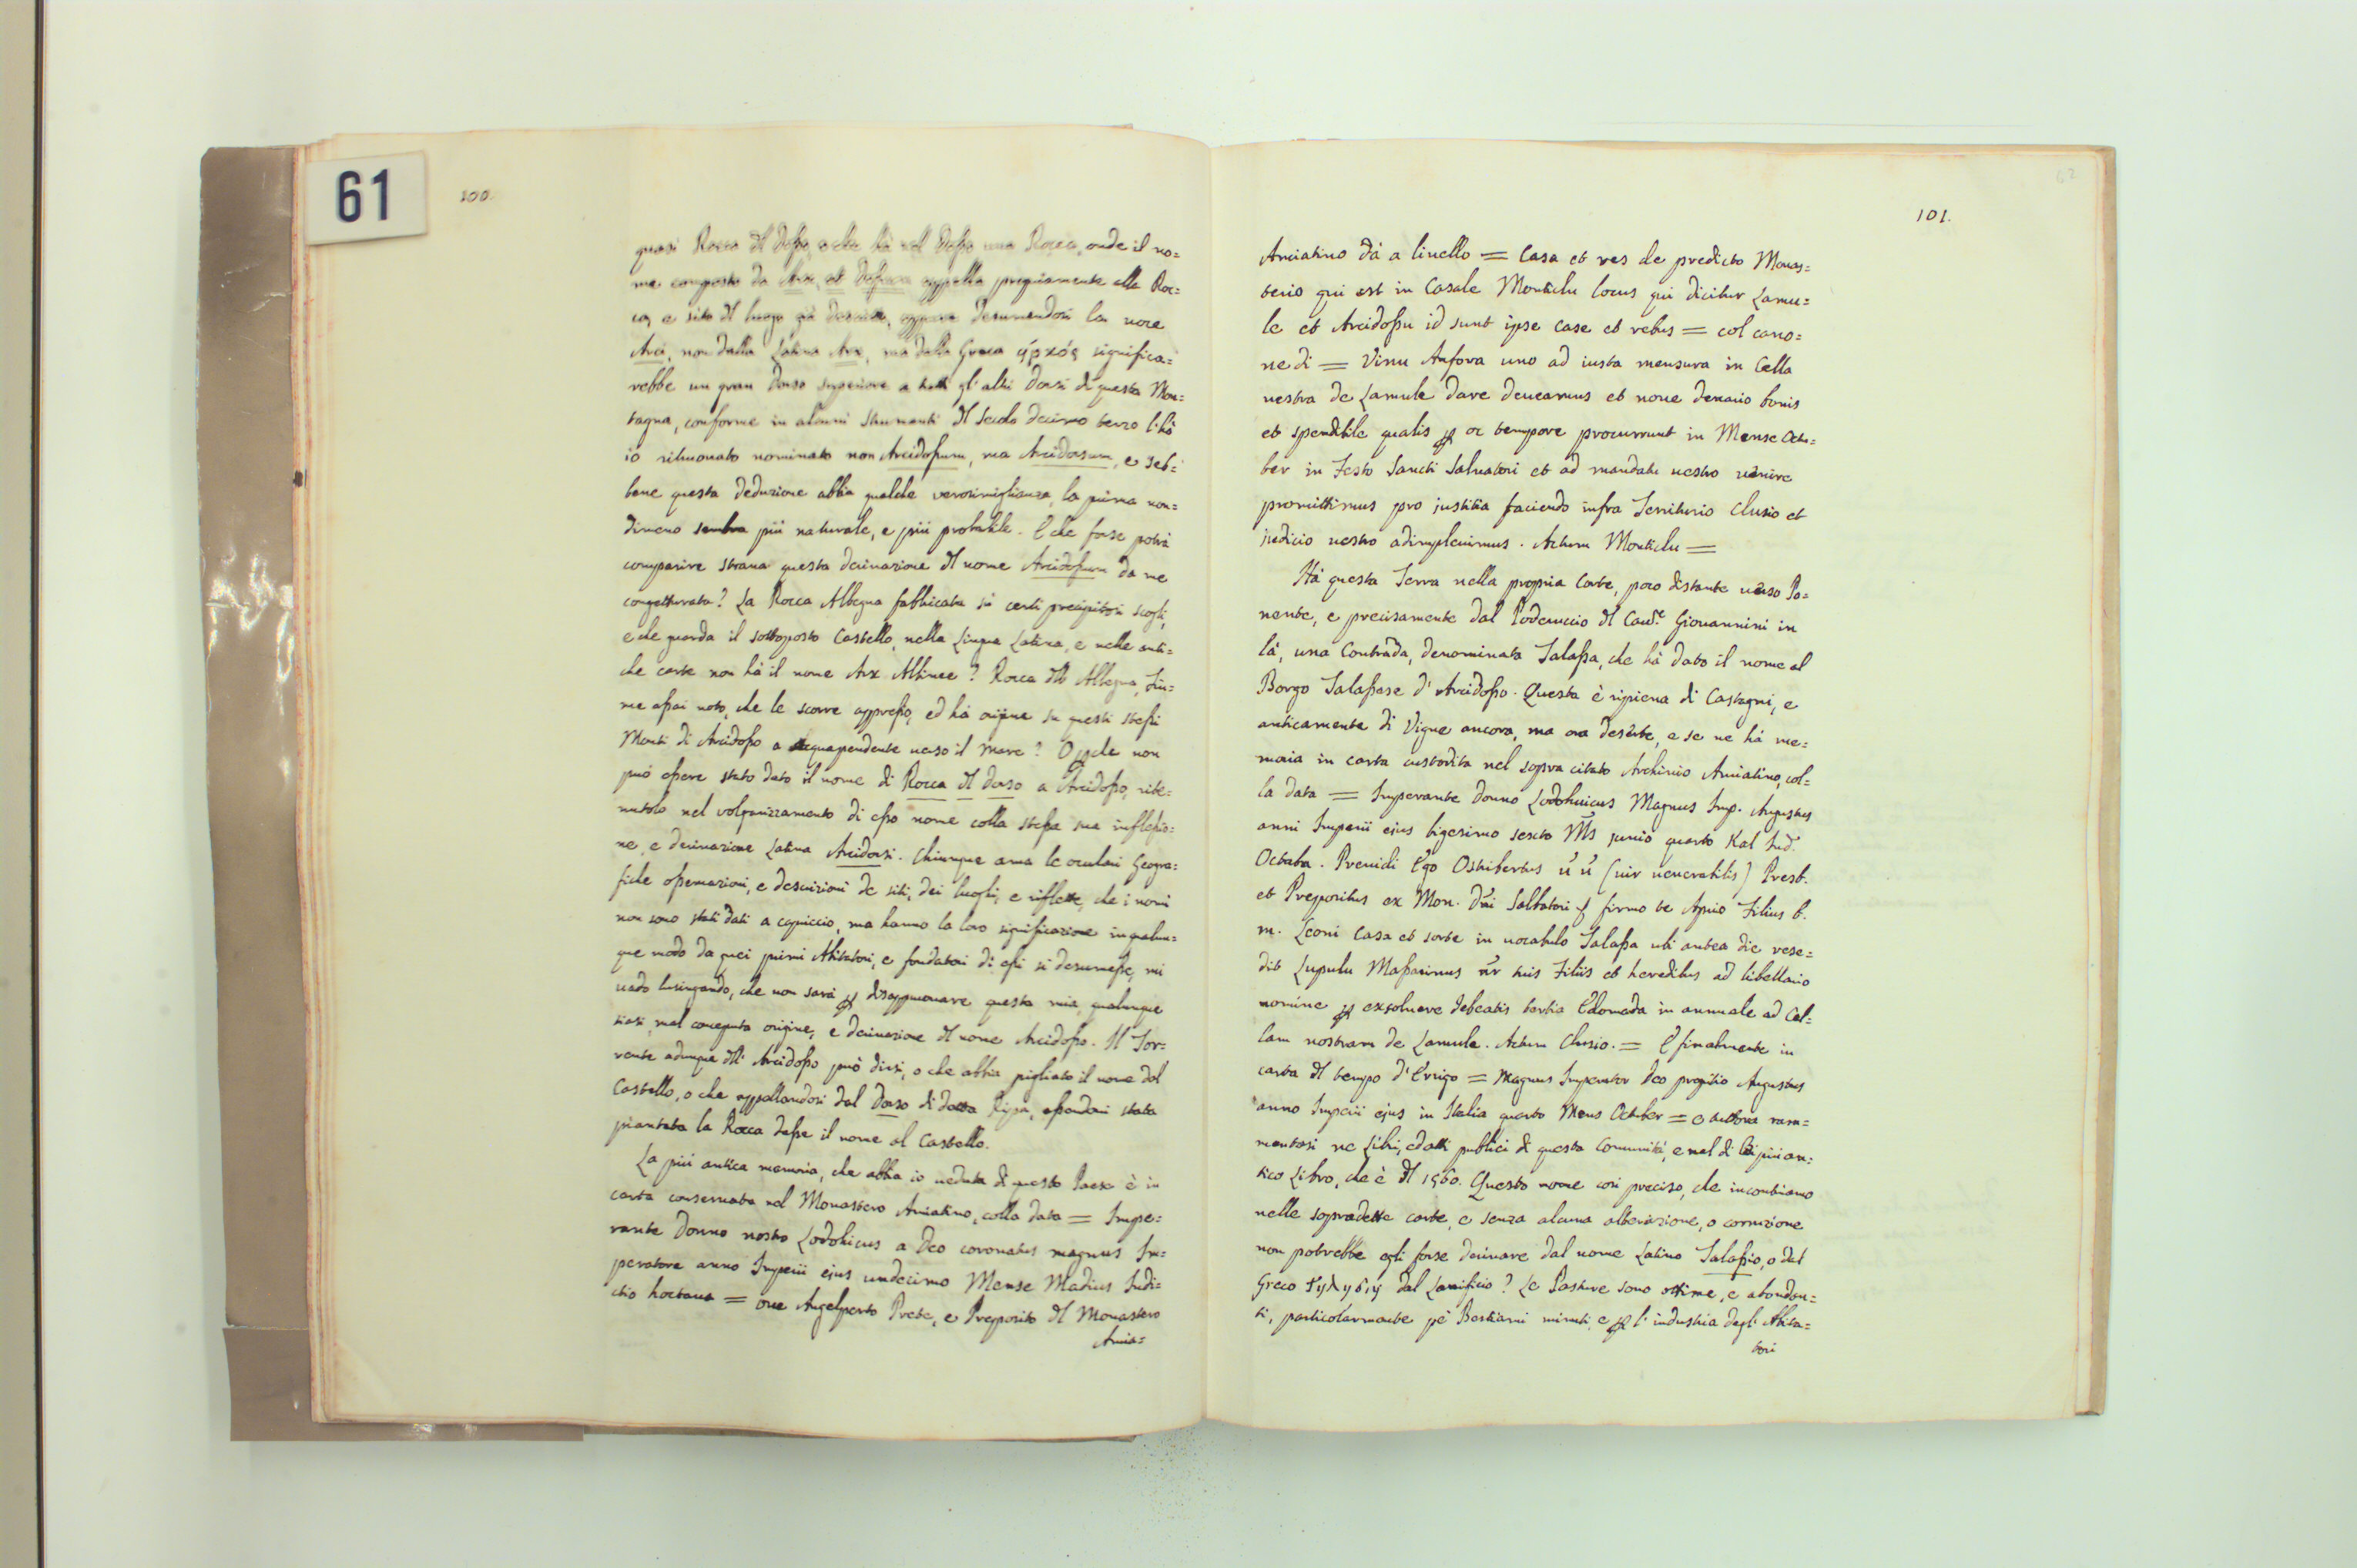 61
100.
quasi Rocca del Dosso, o che hà nel Dosso una Rocca, onde il no=
me composto da Arx, et Dossum appella propriamente alla Roc=
ca, e sito del luogo già descritto, oppure desumendosi la voce
Arci, non dalla Latina Arx, ma dalla Greca significa=
rebbe un gran Dorso superiore a tutti gl'altri Dorsi di questa Mon=
tagna, conforme in alcuni strumenti del secolo decimo terzo l'hò
io ritrovato nominato non Arcidossum, ma Arcidorsum, e seb=
bene questa deduzione abbia qualche verosimiglianza, la prima non=
dimeno sembra più naturale, e più probabile. E che forse potrà
comparire strana questa derivazione del nome Arcidossum da me
congetturata? La Rocca Albegna fabbricata sù certi precipitosi scogli,
e che guarda il sottoposto Castello, nella Lingua Latina, e nelle anti=
che carte non hà il nome Arx Albinee? Rocca dell'Albegna, Fiu=
me assai noto, che le scorre appresso, ed hà origine su questi stessi
Monti di Arcidosso a acquapendente verso il Mare? O perche non
può essere stato dato il nome di Rocca del dorso a Arcidosso, rite=
nutolo nel volgarizzamento di esso nome colla stessa sua inflessio=
ne, e derivazione Latina Arcidorsi. Chiunque ama le oculari Geogra=
fiche osservazioni, e descrizioni de siti, dei luoghi, e riflette, che i nomi
non sono stati dati a capriccio, ma hanno la loro significazione in qualun=
que modo da quei primi Abitatori, e fondatori di essi si desumesse, mi
vado lusingando, che non sarà per disapprovare questa mia, qualunque
siasi, mal conceputa origine, e derivazione del nome Arcidosso. Il Tor=
rente adunque dell'Arcidosso può dirsi, o che abbia pigliato il nome dal
Castello, o che appellandosi dal Dorso di detta Ripa, essendovi stata
piantata la Rocca desse il nome al Castello.
La più antica memoria, che abbia io veduta di questo Paese è in
carta conservata nel Monastero Amiatino, colla data = Impe=
rante Domno nostro Lodohicus a Deo coronatus magnus Im=
peratore anno Imperii ejus undecimo Mense Madius Indi=
ctio hoctava = ove Angelperto Prete, e Preposito del Monastero
Amia=
101.
Amiatino dà a livello = Casa et res de predicto Monas=
terio qui est in Casale Monticlu locus qui dicitur Lamu=
le et Arcidossu id sunt ipse case et rebus = col cano=
ne di = Vinu Anfora uno ad iusta mensura in Cella
vestra de Lamule dare deveamus et nove denario bonis
et spendibile qualis per oc tempore procurrunt in Mense Octu=
ber in Festo Sancti Salvatori et ad mandatu vestro venire
promittimus pro justitia faciendo infra Territurio Clusio et
judicio vestro adimplevimus. Actum Monticlu =
Hà questa Terra nella propria Corte, poco distante verso Po=
nente, e precisamente dal Poderuccio del Cav.e Giovannini in
là, una Contrada, denominata Talassa, che hà dato il nome al
Borgo Talassese d'Arcidosso. Questa è ripiena di Castagni, e
anticamente di Vigne ancora, ma ora deserte, e se ne hà me=
moria in carta custodita nel sopra citato Archivio Amiatino, col=
la data = Imperante Donno Lodohuicus Magnus Imp. Augustus
anni Imperii ejus bigesimo sexto Ms junio quarto Kal Ind.
Octaba. Previdi Ego Ostribertus u u (vir venerabilis) Presb.
et Prepositus ex Mon. Dni Salbatori firmo te Apio Filius b.
m. Leoni Casa et sorte in vocabulo Talassa ubi antea die rese=
dit Lupulu Massarinus vr tuis Filiis et heredibus ad libellario
nomine per exsolvere debeatis tertia Edomada in annuale ad Cel=
lam nostram de Lamule. Actum Clusio. = E finalmente in
carta del tempo d'Errigo = Magnus Imperator Deo propitio Augustus
anno Imperii ejus in Italia quarto Mens October = o ancora ram=
mentasi ne Libri, ed atti publici di questa Comunità, e nel di lei più an=
tico Libro, che è del 1560. Questo nome così preciso, che incontriamo
nelle sopradette carte, e senza alcuna alterazione, o corruzione
non potrebbe egli forse derivare dal nome Latino Talassio, o dal
Greco dal Lanificio? Le Pasture sono ottime, e abondan=
ti, particolarmente pe' Bestiami minuti, e per l'industria degl'Abita=
tori